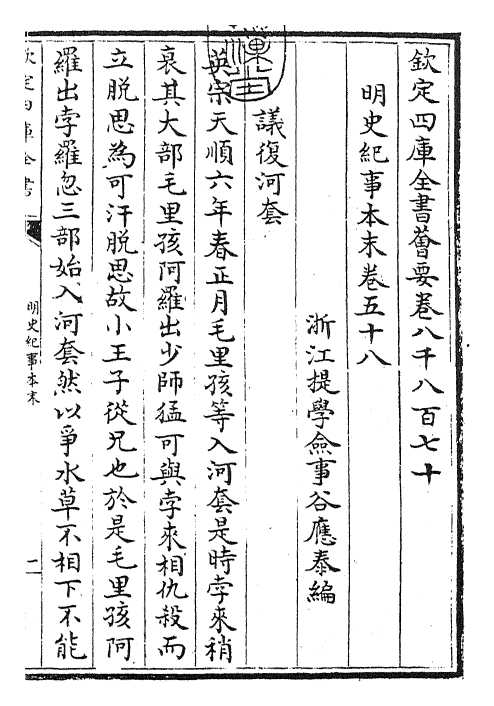 欽定四庫全書薈要卷八千八百七十
明史紀事本末卷五十八
浙江提學僉事谷應泰編
議復河套
英宗天順六年春正月毛里孩等入河套是時孛來稍
衰其大部毛里孩阿羅出少師猛可與孛來相仇殺而
立脫思為可汗脫思故小王子從兄也於是毛里孩阿
羅出孛羅忽三部始入河套然以爭水草不相下不能
欽定四庫全書
明史紀事本末